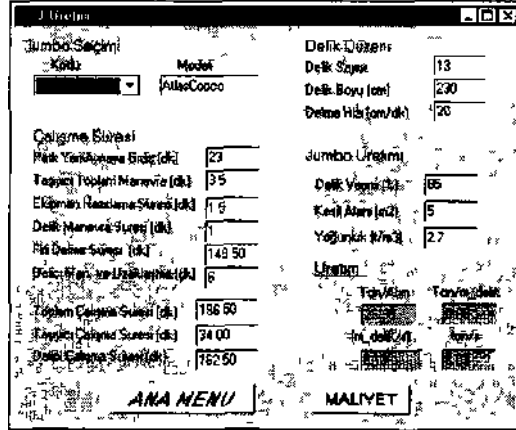 J.Üretim
Jumbo Seçimi
Kodu Model
AtlasCopco
Çalışma Süresi
Park Yeri Aynaya Gidiş (dk) 23
Taşıyıcı Toplam Manevra (dk) 3.5
Ekipman Hazırlama Süresi (dk) 1.5
Delik Manevra Süresi (dk) 1
Fiili Delme Süresi (dk) 149.50
6
Toplam Çalışma Süresi (dk) 186.50
Taşıyıcı Çalışma Süresi (dk) 34.00
Delici Çalışma Süresi (dk) 162.50
ANA MENU
Delik Düzeni
Delik Sayısı 13
Delik Boyu (cm) 230
Delme Hızı (cm/dk) 20
Jumbo Üretimi
Delik Verimi (%) 85
Kesit Alanı (m2) 5
Yoğunluk (t/m3) 2.7
Üretim
Ton/Atım Ton/m_delik
MALIYET